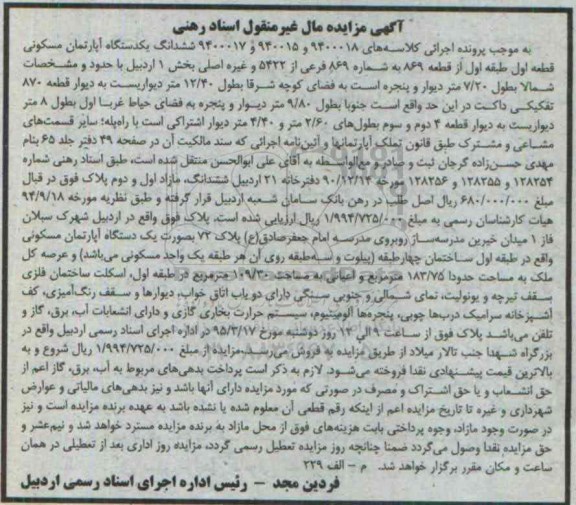 آگهی مزایده مال غیرمنقول اسناد رهنی
به موجب پرونده اجرائی کلاسه‌های ۹۴۰۰۰۱۸ و ۹۴۰۰۱۵ و ۹۴۰۰۰۱۷ ششدانگ یکدستگاه آپارتمان مسکونی
قطعه اول طبقه اول از قطعه ۸۶۹ به شماره ۸۶۹ فرعی از ۵۴۲۲ و غیره اصلی بخش ۱ اردبیل با حدود و مشخصات
شمالا بطول ۷/۲۰ متر دیوار و پنجره است به فضای کوچه شرقا بطول ۱۲/۴۰ متر دیواریست به دیوار قطعه ۸۷۰
تفکیکی داکت در این حد واقع است جنوبا بطول ۹/۸۰ متر دیوار و پنجره به فضای حیاط غربا اول بطول ۸ متر
دیواریست به دیوار قطعه ۴ دوم و سوم بطول‌های ۲/۶۰ متر و ۴/۴۰ متر دیوار اشتراکی است با راه‌پله؛ سایر قسمت‌های
مشاعی و مشترک طبق قانون تملک آپارتمانها و آئین‌نامه اجرائی که سند مالکیت آن در صفحه ۴۹ دفتر جلد ۶۵ بنام
مهدی حسن‌زاده گرجان ثبت و صادر و مع‌الواسطه به آقای علی ابوالحسن منتقل شده است، طبق اسناد رهنی شماره
۱۲۸۲۵۴ و ۱۲۸۲۵۵ و ۱۲۸۲۵۶ مورخه ۹۰/۱۲/۱۴ دفترخانه ۲۱ اردبیل ششدانگ، مازاد اول و دوم پلاک فوق در قبال
مبلغ ۶۸۰/۰۰۰/۰۰۰ ریال اصل طلب در رهن بانک سامان شعبه اردبیل قرار گرفته و طبق نظریه مورخه ۹۴/۹/۱۸
هیات کارشناسان رسمی به مبلغ ۱/۹۹۴/۷۲۵/۰۰۰ ریال ارزیابی شده است. پلاک فوق واقع در اردبیل شهرک سبلان
فاز ۱ میدان خیرین مدرسه‌ساز روبروی مدرسه امام جعفرصادق(ع) پلاک ۷۲ بصورت یک دستگاه آپارتمان مسکونی
واقع در طبقه اول ساختمان چهارطبقه (پیلوت و سه‌طبقه روی آن هر طبقه یک واحد مسکونی می‌باشد) و عرصه کل
ملک به مساحت حدودا ۱۸۳/۷۵ مترمربع و اعیانی به مساحت ۱۰۹/۳۰ مترمربع در طبقه اول، اسکلت ساختمان فلزی
سقف تیرچه و یونولیت، نمای شمالی و جنوبی سنگی دارای دو باب اتاق خواب، دیوارها و سقف رنگ‌آمیزی، کف
آشپزخانه سرامیک درب‌ها چوبی، پنجره‌ها آلومینیوم، سیستم حرارت بخاری گازی و دارای انشعابات آب، برق، گاز و
تلفن می‌باشد پلاک فوق از ساعت ۹ الی ۱۲ روز دوشنبه مورخ ۹۵/۳/۱۷ در اداره اجرای اسناد رسمی اردبیل واقع در
بزرگراه شهدا جنب تالار میلاد از طریق مزایده به فروش می‌رسد، مزایده از مبلغ ۱/۹۹۴/۷۲۵/۰۰۰ ریال شروع و به
بالاترین قیمت پیشنهادی نقدا فروخته می‌شود. لازم به ذکر است پرداخت بدهی‌های مربوط به آب، برق، گاز اعم از
حق انشعاب و یا حق اشتراک و مصرف در صورتی که مورد مزایده دارای آنها باشد و نیز بدهی‌های مالیاتی و عوارض
شهرداری و غیره تا تاریخ مزایده اعم از اینکه رقم قطعی آن معلوم شده یا نشده باشد به عهده برنده مزایده است و نیز
در صورت وجود مازاد، وجوه پرداختی بابت هزینه‌های فوق از محل مازاد به برنده مزایده مسترد خواهد شد و نیم‌عشر و
حق مزایده نقدا وصول می‌گردد ضمنا چنانچه روز مزایده تعطیل رسمی گردد، مزایده روز اداری بعد از تعطیلی در همان
ساعت و مکان مقرر برگزار خواهد شد. م – الف ۲۲۹
فردین مجد – رئیس اداره اجرای اسناد رسمی اردبیل